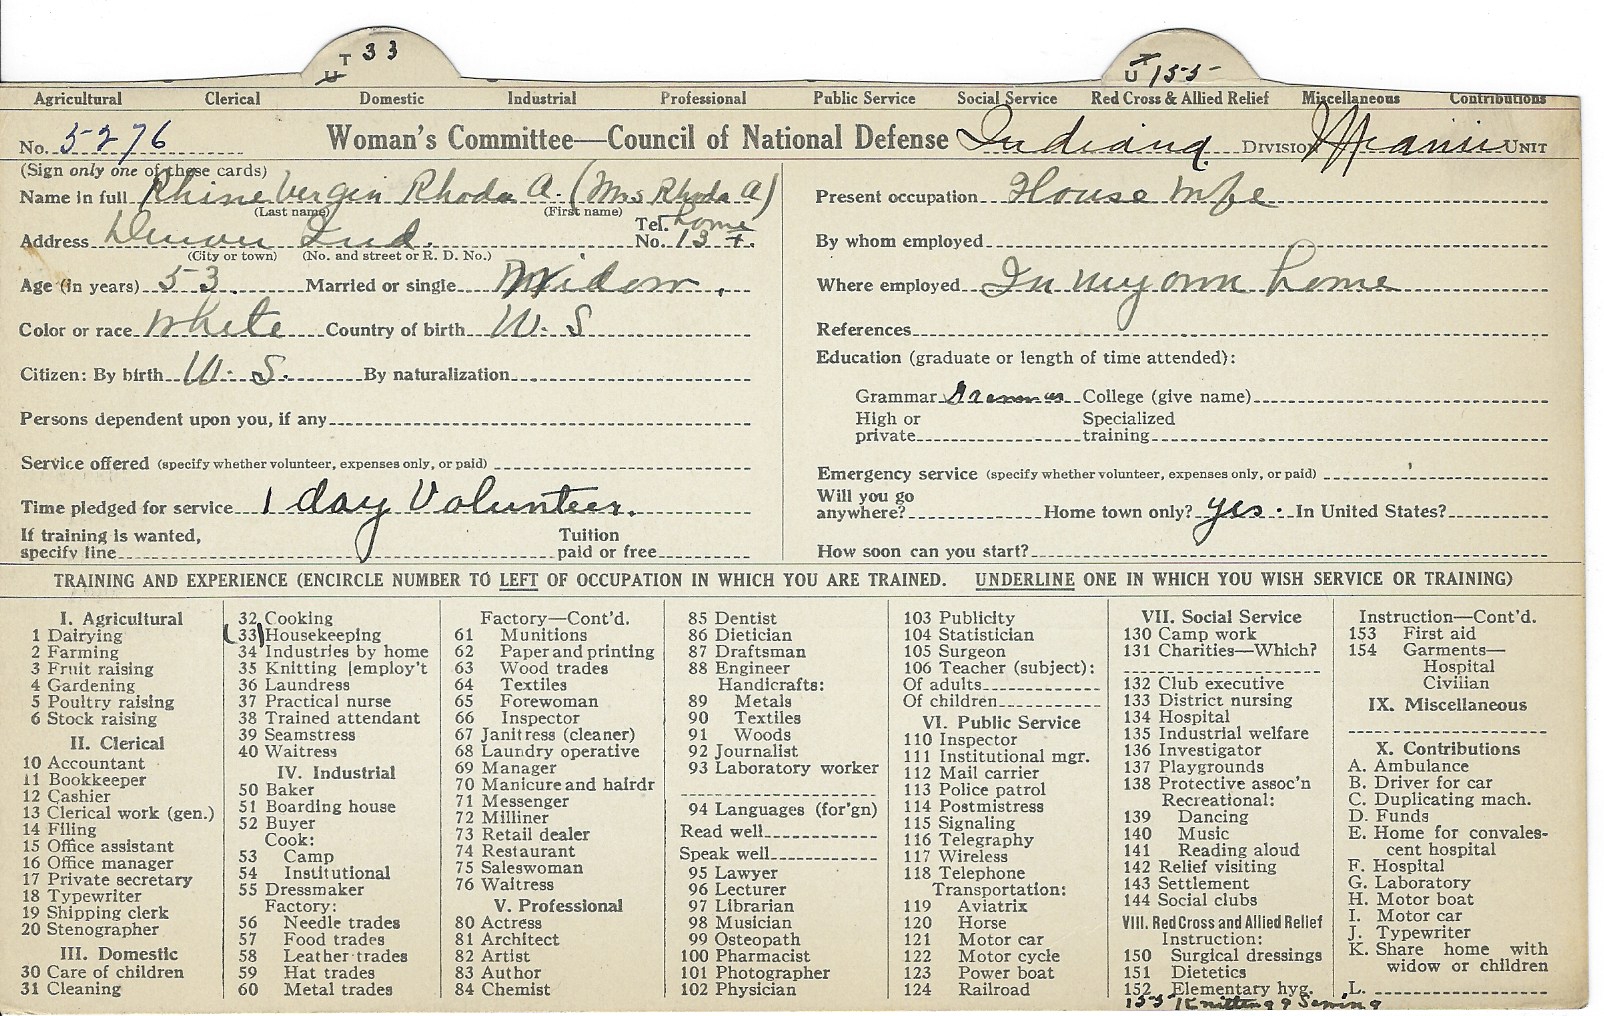 T 33
U
T
U 155
Agricultural Clerical Domestic Industrial Professional Public Service Social Service Red Cross & Allied Relief Miscellaneous Contributions
No. 5276 Woman's Committee—Council of National Defense Indiana DIVISION Miami UNIT
(Sign only one of these cards)
Name in full Rhinevergin Rhoda A. (Mrs Rhoda A)
(Last name) (First name)
Address Denver Ind. Tel. No. home 13
(City or town) (No. and street or R. D. No.)
Age (in years) 53. Married or single Widow.
Color or race White Country of birth U. S
Citizen: By birth U. S. By naturalization
Persons dependent upon you, if any
Service offered (specify whether volunteer, expenses only, or paid)
Time pledged for service 1 day Volunteer.
If training is wanted, specify line Tuition paid or free
Present occupation House Wife
By whom employed
Where employed In my own home
References
Education (graduate or length of time attended):
Grammar Grammar College (give name)
High or private Specialized training
Emergency service (specify whether volunteer, expenses only, or paid)
Will you go anywhere? Home town only? yes. In United States?
How soon can you start?
TRAINING AND EXPERIENCE (ENCIRCLE NUMBER TO LEFT OF OCCUPATION IN WHICH YOU ARE TRAINED. UNDERLINE ONE IN WHICH YOU WISH SERVICE OR TRAINING)
I. Agricultural
1 Dairying
2 Farming
3 Fruit raising
4 Gardening
5 Poultry raising
6 Stock raising
II. Clerical
10 Accountant
11 Bookkeeper
12 Cashier
13 Clerical work (gen.)
14 Filing
15 Office assistant
16 Office manager
17 Private secretary
18 Typewriter
19 Shipping clerk
20 Stenographer
III. Domestic
30 Care of children
31 Cleaning
32 Cooking
(33) Housekeeping
34 Industries by home
35 Knitting [employ't
36 Laundress
37 Practical nurse
38 Trained attendant
39 Seamstress
40 Waitress
IV. Industrial
50 Baker
51 Boarding house
52 Buyer
Cook:
53 Camp
54 Institutional
55 Dressmaker
Factory:
56 Needle trades
57 Food trades
58 Leather trades
59 Hat trades
60 Metal trades
Factory—Cont'd.
61 Munitions
62 Paper and printing
63 Wood trades
64 Textiles
65 Forewoman
66 Inspector
67 Janitress (cleaner)
68 Laundry operative
69 Manager
70 Manicure and hairdr
71 Messenger
72 Milliner
73 Retail dealer
74 Restaurant
75 Saleswoman
76 Waitress
V. Professional
80 Actress
81 Architect
82 Artist
83 Author
84 Chemist
85 Dentist
86 Dietician
87 Draftsman
88 Engineer
Handicrafts:
89 Metals
90 Textiles
91 Woods
92 Journalist
93 Laboratory worker
94 Languages (for'gn)
Read well
Speak well
95 Lawyer
96 Lecturer
97 Librarian
98 Musician
99 Osteopath
100 Pharmacist
101 Photographer
102 Physician
103 Publicity
104 Statistician
105 Surgeon
106 Teacher (subject):
Of adults
Of children
VI. Public Service
110 Inspector
111 Institutional mgr.
112 Mail carrier
113 Police patrol
114 Postmistress
115 Signaling
116 Telegraphy
117 Wireless
118 Telephone
Transportation:
119 Aviatrix
120 Horse
121 Motor car
122 Motor cycle
123 Power boat
124 Railroad
VII. Social Service
130 Camp work
131 Charities—Which?
132 Club executive
133 District nursing
134 Hospital
135 Industrial welfare
136 Investigator
137 Playgrounds
138 Protective assoc'n
Recreational:
139 Dancing
140 Music
141 Reading aloud
142 Relief visiting
143 Settlement
144 Social clubs
VIII. Red Cross and Allied Relief
Instruction:
150 Surgical dressings
151 Dietetics
152 Elementary hyg.
155 Knitting & Sewing
Instruction—Cont'd.
153 First aid
154 Garments—
Hospital
Civilian
IX. Miscellaneous
X. Contributions
A. Ambulance
B. Driver for car
C. Duplicating mach.
D. Funds
E. Home for convales-
cent hospital
F. Hospital
G. Laboratory
H. Motor boat
I. Motor car
J. Typewriter
K. Share home with
widow or children
L.